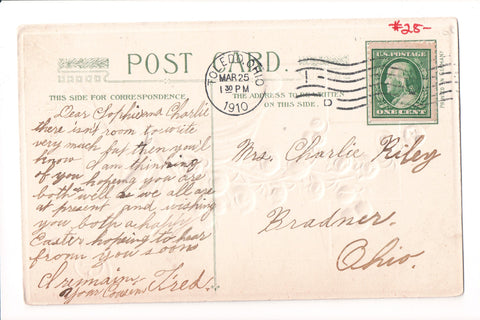 #25-
POST CARD.
TOLEDO, OHIO
MAR 25
1 30 PM
1910
U.S. POSTAGE
ONE CENT
THIS SIDE FOR CORRESPONDENCE.
THE ADDRESS TO BE WRITTEN
ON THIS SIDE.
Dear Sophie and Charlie
there isn't room to write
very much but then you'll
know I am thinking
of you hoping you are
both well as we all are
at present and wishing
you both a happy
Easter hoping to hear
from you soon
I remain
your Cousin Fred.
Mrs. Charlie Riley
Bradner.
Ohio.